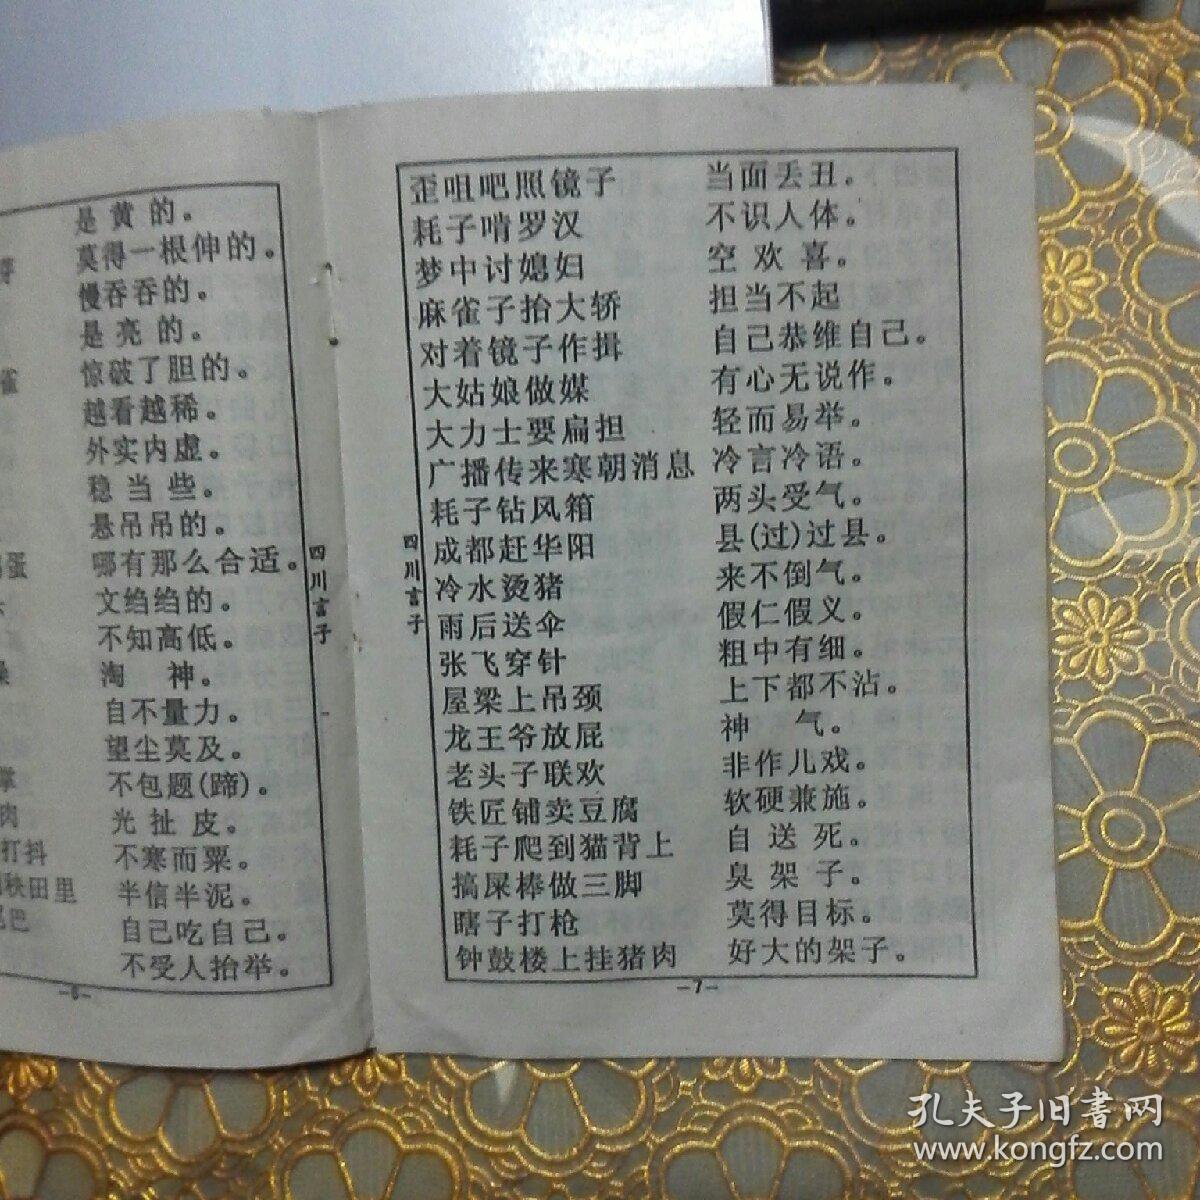 是黄的。
莫得一根伸的。
慢吞吞的。
是亮的。
雀 惊破了胆的。
越看越稀。
外实内虚。
稳当些。
悬吊吊的。
蛋 哪有那么合适。
文绉绉的。
不知高低。
淘 神。
自不量力。
望尘莫及。
掌 不包题(蹄)。
肉 光扯皮。
打抖 不寒而粟。
秧田里 半信半泥。
尾巴 自己吃自己。
不受人抬举。
四川言子
-6-
四川言子
歪咀吧照镜子 当面丢丑。
耗子啃罗汉 不识人体。
梦中讨媳妇 空欢喜。
麻雀子抬大轿 担当不起
对着镜子作揖 自己恭维自己。
大姑娘做媒 有心无说作。
大力士耍扁担 轻而易举。
广播传来寒朝消息 冷言冷语。
耗子钻风箱 两头受气。
成都赶华阳 县(过)过县。
冷水烫猪 来不倒气。
雨后送伞 假仁假义。
张飞穿针 粗中有细。
屋梁上吊颈 上下都不沾。
龙王爷放屁 神 气。
老头子联欢 非作儿戏。
铁匠铺卖豆腐 软硬兼施。
耗子爬到猫背上 自送死。
搞屎棒做三脚 臭架子。
瞎子打枪 莫得目标。
钟鼓楼上挂猪肉 好大的架子。
-7-
孔夫子旧書网
www.kongfz.com